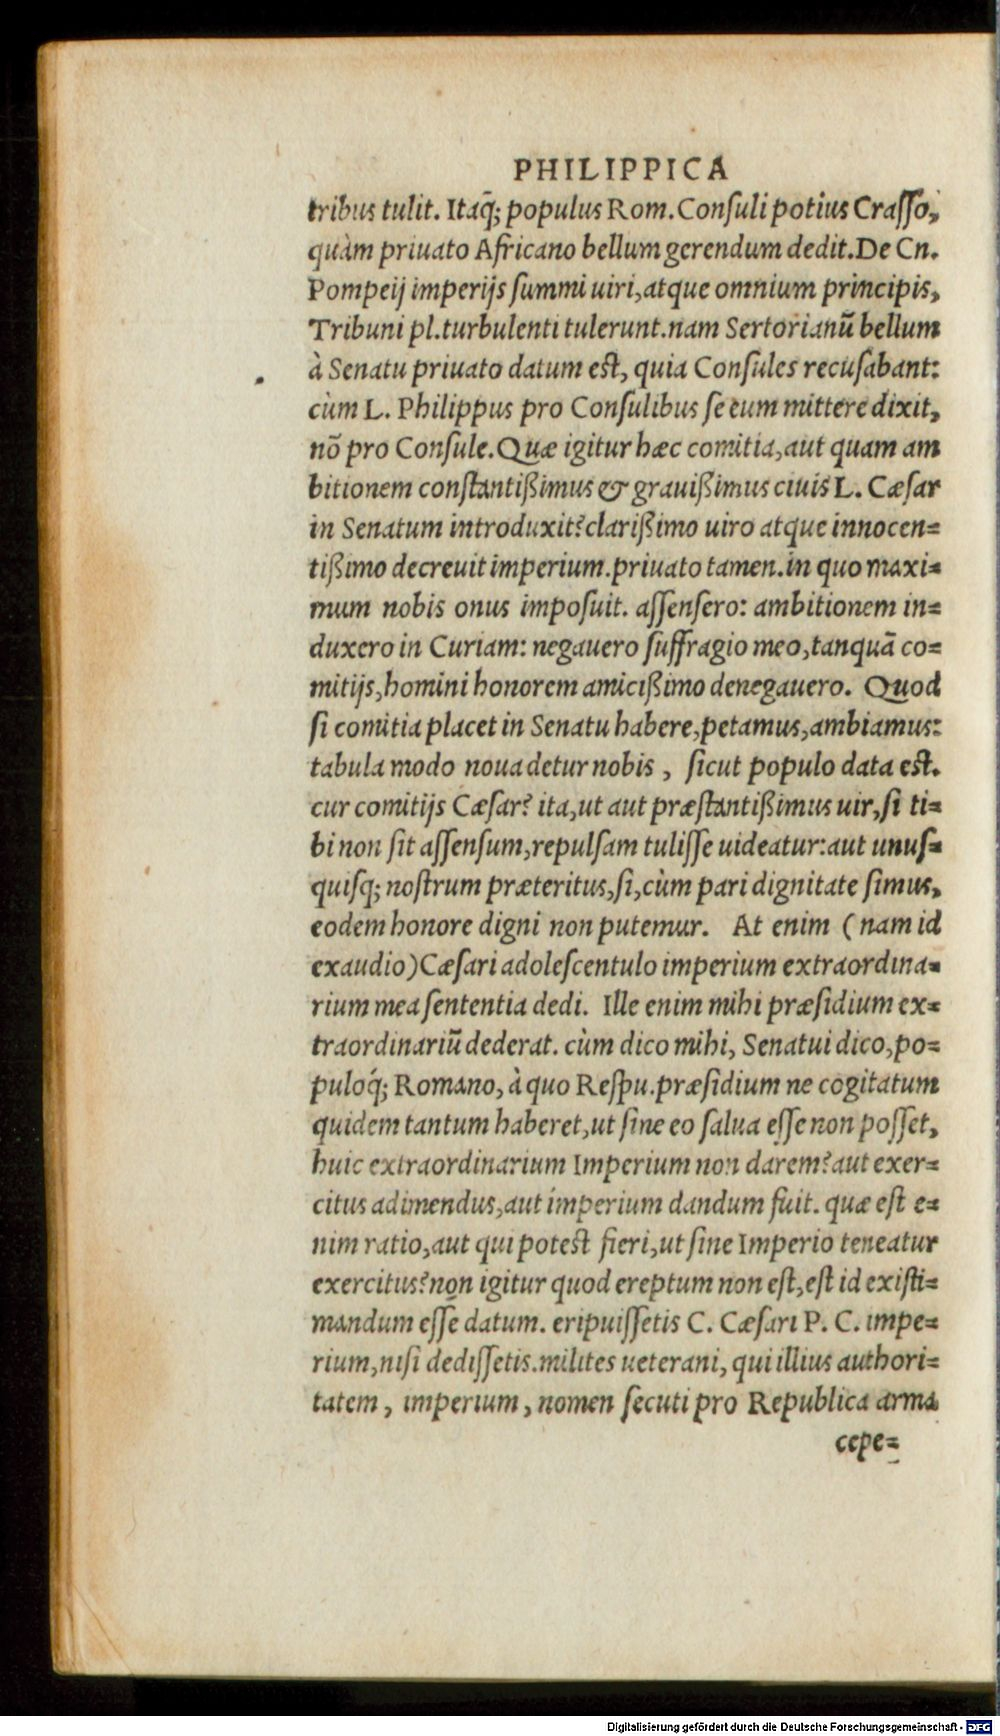 PHILIPPICA
tribus tulit. Itaq̃; populus Rom. Conſuli potius Craſſo,
quàm priuato Africano bellum gerendum dedit. De Cn.
Pompeij imperijs ſummi uiri, atque omnium principis,
Tribuni pl. turbulenti tulerunt. nam Sertorianũ bellum
à Senatu priuato datum eſt, quia Conſules recuſabant:
cùm L. Philippus pro Conſulibus ſe eum mittere dixit,
nõ pro Conſule. Quæ igitur hæc comitia, aut quam am
bitionem conſtantißimus & grauißimus ciuis L. Cæſar
in Senatum introduxit? clarißimo uiro atque innocen=
tißimo decreuit imperium. priuato tamen. in quo maxi=
mum nobis onus impoſuit. aſſenſero: ambitionem in=
duxero in Curiam: negauero ſuffragio meo, tanquã co=
mitijs, homini honorem amicißimo denegauero. Quod
ſi comitia placet in Senatu habere, petamus, ambiamus:
tabula modo noua detur nobis, ſicut populo data eſt.
cur comitijs Cæſar? ita, ut aut præſtantißimus uir, ſi ti=
bi non ſit aſſenſum, repulſam tuliſſe uideatur: aut unuſ=
quiſq; noſtrum præteritus, ſi, cùm pari dignitate ſimus,
eodem honore digni non putemur. At enim (nam id
exaudio) Cæſari adoleſcentulo imperium extraordina=
rium mea ſententia dedi. Ille enim mihi præſidium ex=
traordinariũ dederat. cùm dico mihi, Senatui dico, po=
puloq́; Romano, à quo Reſpu. præſidium ne cogitatum
quidem tantum haberet, ut ſine eo ſalua eſſe non poſſet,
huic extraordinarium Imperium non darem? aut exer=
citus adimendus, aut imperium dandum fuit. quæ eſt e=
nim ratio, aut qui poteſt fieri, ut ſine Imperio teneatur
exercitus? non igitur quod ereptum non eſt, eſt id exiſti=
mandum eſſe datum. eripuiſſetis C. Cæſari P. C. impe=
rium, niſi dediſſetis. milites ueterani, qui illius authori=
tatem, imperium, nomen ſecuti pro Republica arma
cepe=
Digitalisierung gefördert durch die Deutsche Forschungsgemeinschaft - DFG